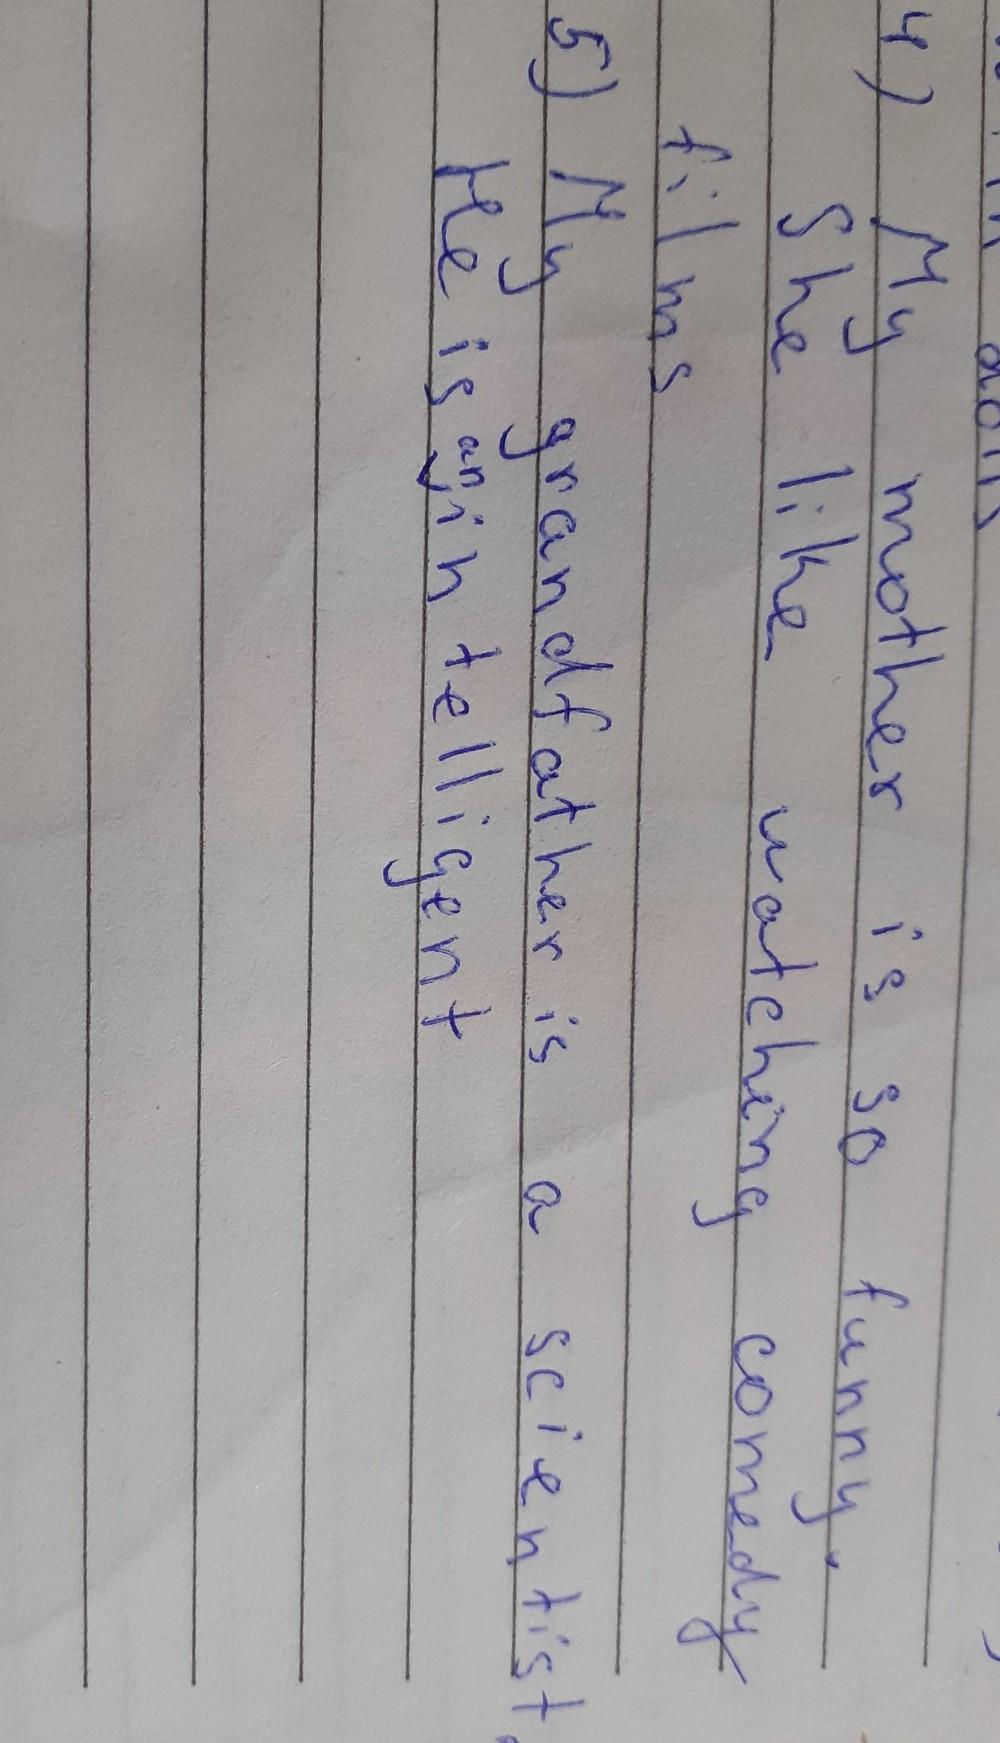 4) My mother is so funny.
She like watching comedy
films
5) My grandfather is a scientist.
He is an intelligent